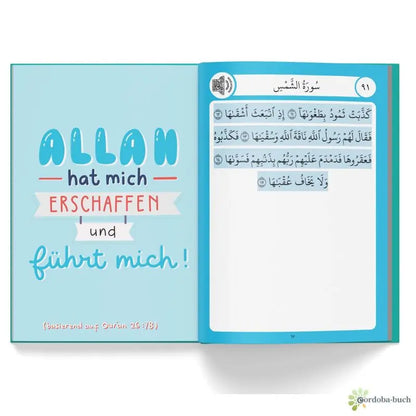 ALLAH
hat mich
ERSCHAFFEN
und
führt mich!
(basierend auf: Quran 26:78)
سُورَةُ الشَّمْسِ
٩١
كَذَّبَتْ ثَمُودُ بِطَغْوَىٰهَآ ١١ إِذِ ٱنۢبَعَثَ أَشْقَىٰهَا ١٢
فَقَالَ لَهُمْ رَسُولُ ٱللَّهِ نَاقَةَ ٱللَّهِ وَسُقْيَـٰهَا ١٣ فَكَذَّبُوهُ
فَعَقَرُوهَا فَدَمْدَمَ عَلَيْهِمْ رَبُّهُم بِذَنۢبِهِمْ فَسَوَّىٰهَا ١٤
وَلَا يَخَافُ عُقْبَـٰهَا ١٥
cordoba-buch